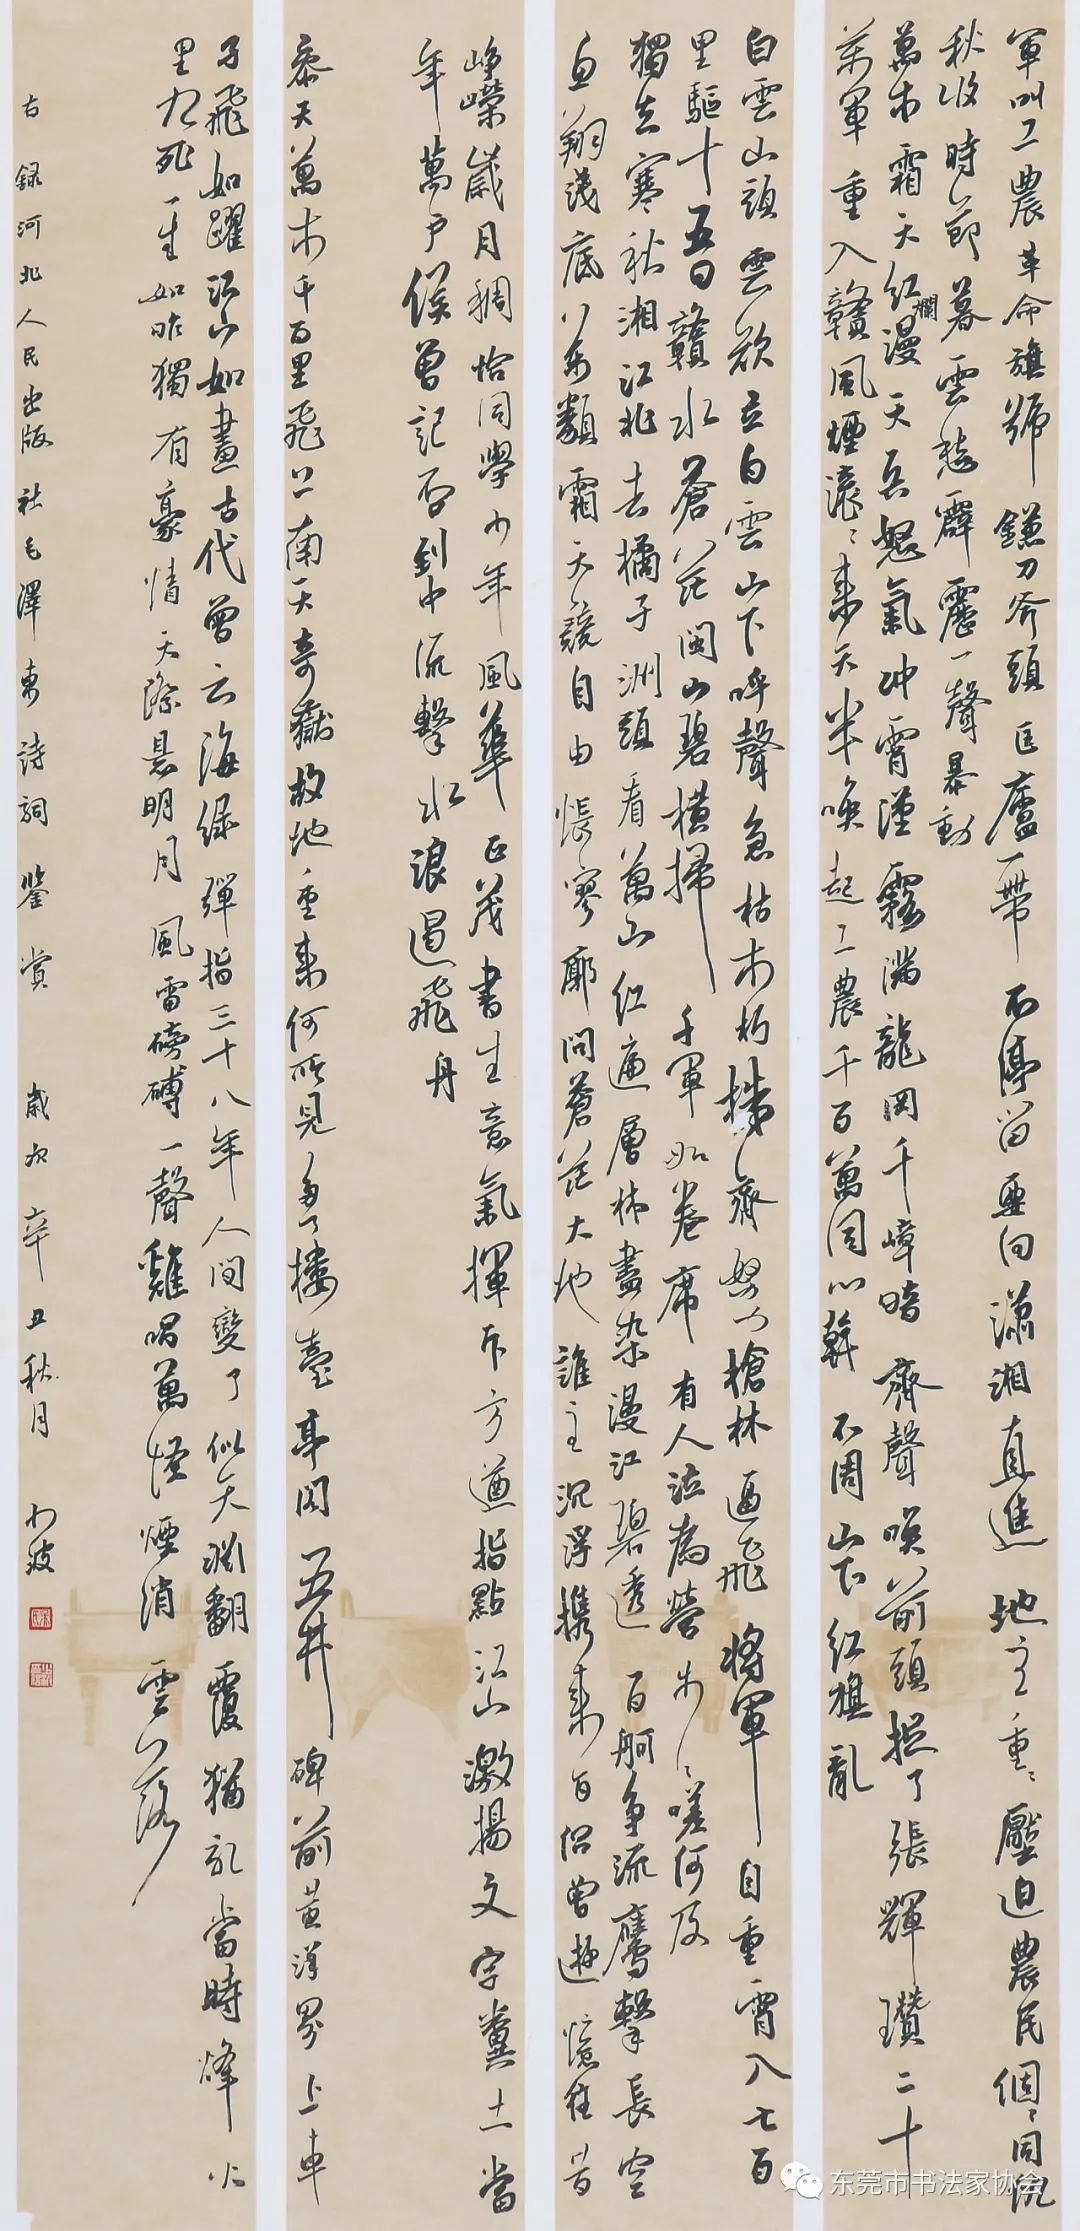 軍叫工農革命旗號鐮刀斧頭匡廬一帶不停留要向瀟湘直進地主重〻壓迫農民個〻同仇
秋收時節暮雲愁霹靂一聲暴動
萬木霜天紅爛漫天兵怒氣沖霄漢霧滿龍岡千嶂暗齊聲喚前頭捉了張輝瓚二十
萬軍重入贛風煙滾〻來天半喚起工農千百萬同心幹不周山下紅旗亂
白雲山頭雲欲立白雲山下呼聲急枯木朽株齊努力槍林逼飛將軍自重霄入七百
里驅十五日贛水蒼茫閩山碧橫掃千軍如卷席有人泣為營步〻嗟何及
獨立寒秋湘江北去橘子洲頭看萬山紅遍層林盡染漫江碧透百舸爭流鷹擊長空
魚翔淺底萬類霜天競自由悵寥廓問蒼茫大地誰主沉浮攜來百侶曾遊憶往昔
崢嶸歲月稠恰同學少年風華正茂書生意氣揮斥方遒指點江山激揚文字糞土當
年萬戶侯曾記否到中流擊水浪遏飛舟
參天萬木千百里飛上南天奇嶽故地重來何所見多了樓臺亭閣五井碑前黃洋界上車
子飛如躍江山如畫古代曾云海綠彈指三十八年人間變了似天淵翻覆猶記當時烽火
里九死一生如昨獨有豪情天際懸明月風雷磅礴一聲雞唱萬怪煙消雲落
右錄河北人民出版社毛澤東詩詞鑒賞歲次辛丑秋月
东莞市书法家协会